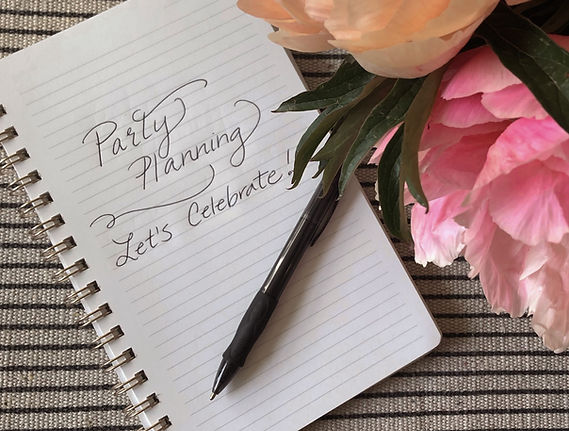 Party
Planning
Let's Celebrate!